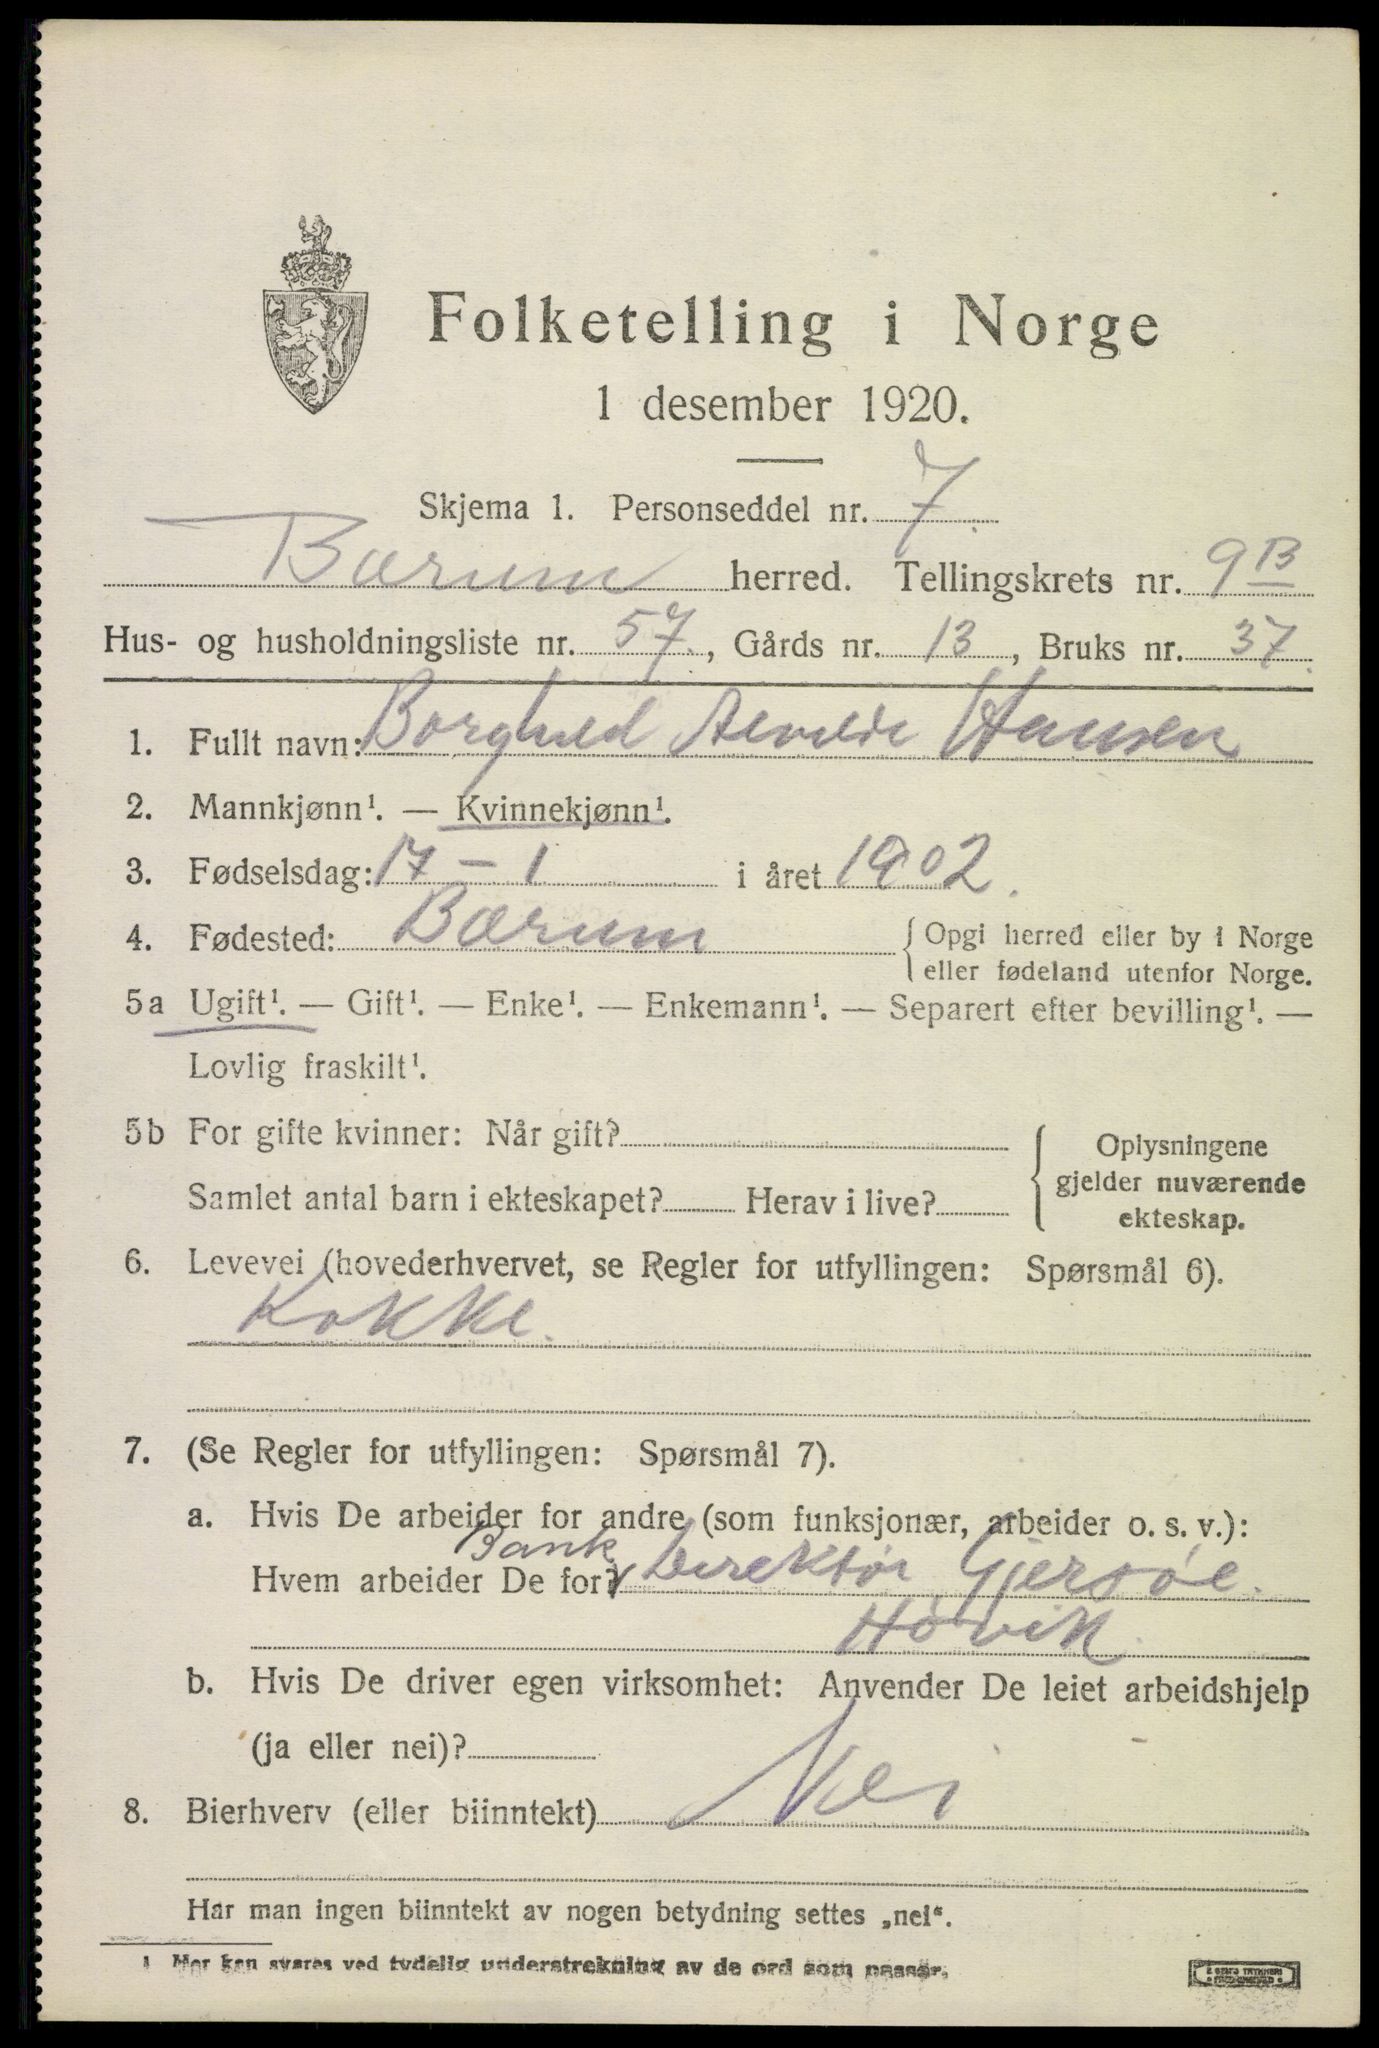 Folketelling i Norge
1 desember 1920.
Skjema 1. Personseddel nr. 7.
Bærum herred. Tellingskrets nr. 9 B
Hus- og husholdningsliste nr. 57, Gårds nr. 13, Bruks nr. 37.
1. Fullt navn: Borghild Hansen
2. Mannkjønn¹. — Kvinnekjønn¹.
3. Fødselsdag: 17 - 1 i året 1902.
4. Fødested: Bærum { Opgi herred eller by i Norge
eller fødeland utenfor Norge.
5a Ugift¹. — Gift¹. — Enke¹. — Enkemann¹. — Separert efter bevilling¹. —
Lovlig fraskilt¹.
5b For gifte kvinner: Når gift?
Samlet antal barn i ekteskapet? Herav i live?
{ Oplysningene
gjelder nuværende
ekteskap.
6. Levevei (hovederhvervet, se Regler for utfyllingen: Spørsmål 6).
Kokke.
7. (Se Regler for utfyllingen: Spørsmål 7).
a. Hvis De arbeider for andre (som funksjonær, arbeider o. s. v.):
Bank
Hvem arbeider De for? Direktør Gjersøe.
Høvik.
b. Hvis De driver egen virksomhet: Anvender De leiet arbeidshjelp
(ja eller nei)?
8. Bierhverv (eller biinntekt) Nei
Har man ingen biinntekt av nogen betydning settes „nei“.
1 Her kan svares ved tydelig understrekning av de ord som passer.